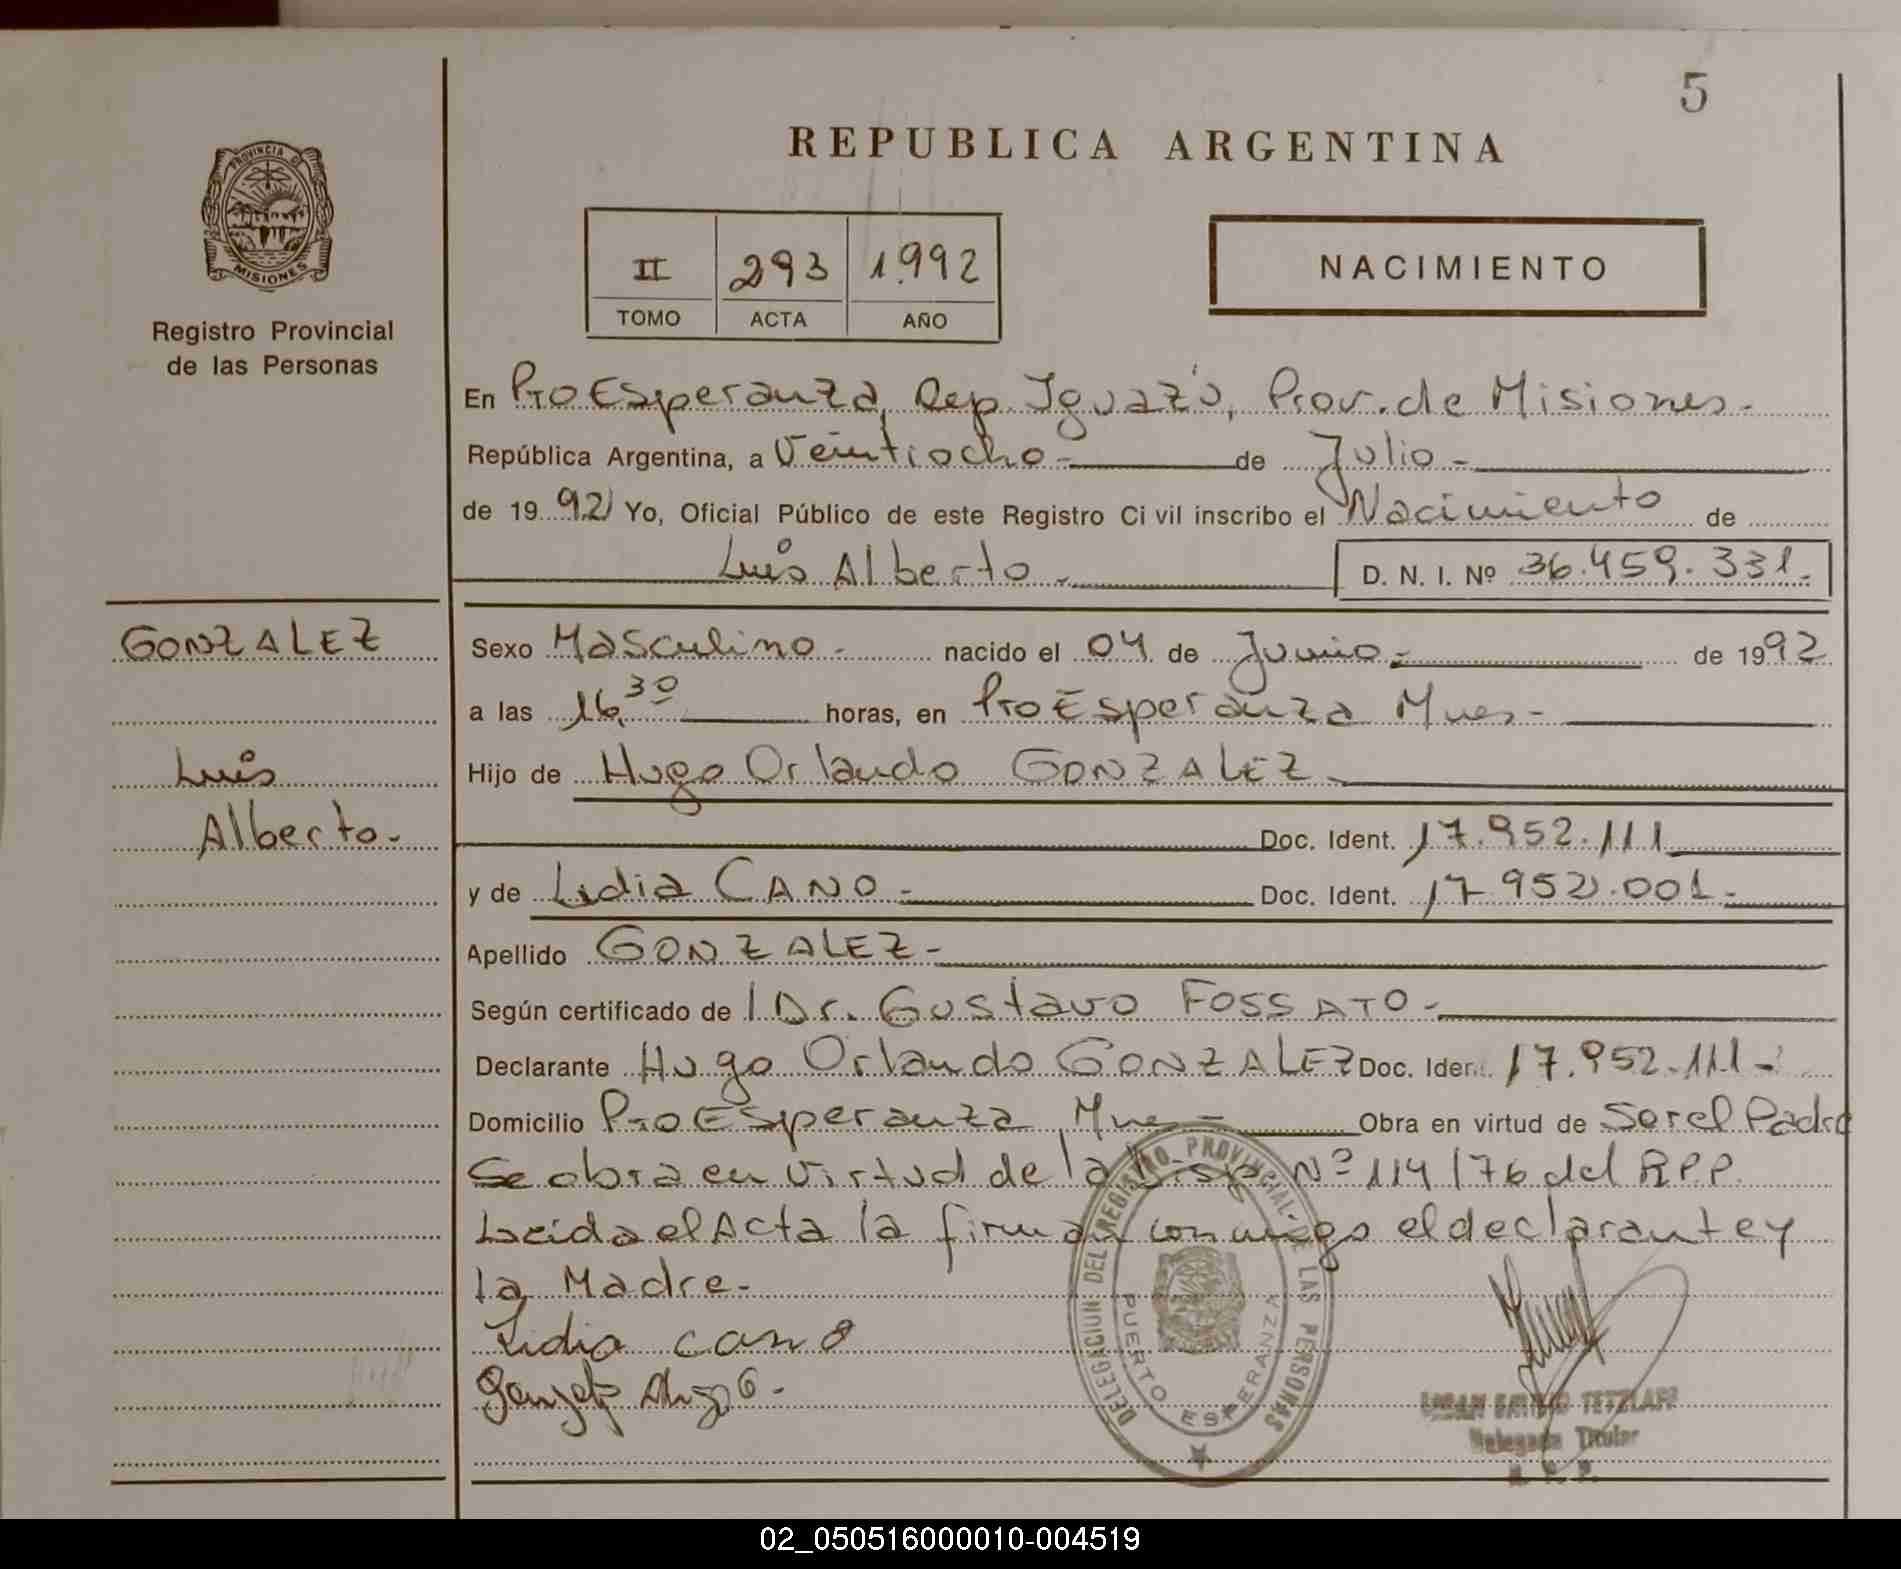 5
REPUBLICA ARGENTINA
PROVINCIA DE
MISIONES
Registro Provincial
de las Personas
II 293 1.992
TOMO ACTA AÑO
NACIMIENTO
En Pto Esperanza, Dep. Iguazú, Prov. de Misiones.-
República Argentina, a Veintiocho.- de Julio.-
de 1992 Yo, Oficial Público de este Registro Civil inscribo el Nacimiento de
Luis Alberto.- D. N. I. Nº 36.459.331.-
GONZALEZ
Luis
Alberto.-
Sexo Masculino.- nacido el 04 de Junio.- de 1992
a las 16,30 horas, en Pto Esperanza Mnes.-
Hijo de Hugo Orlando GONZALEZ.-
Doc. Ident. 17.952.111
y de Lidia CANO.- Doc. Ident. 17.952.001.-
Apellido GONZALEZ.-
Según certificado de Dr. Gustavo FOSSATO.-
Declarante Hugo Orlando GONZALEZ Doc. Iden. 17.952.111-
Domicilio Pto Esperanza Mnes.- Obra en virtud de Ser el Padre
Se obra en virtud de la Disp. Nº 114/76 del R.P.P.
Leida el Acta la firman conmigo el declarante y
la Madre.-
Lidia cano
Hugo O.-
DELEGACION DEL REGISTRO PROVINCIAL DE LAS PERSONAS
PUERTO ESPERANZA
TETZLAFF
Delegado Titular
R. P. P.
02_050516000010-004519